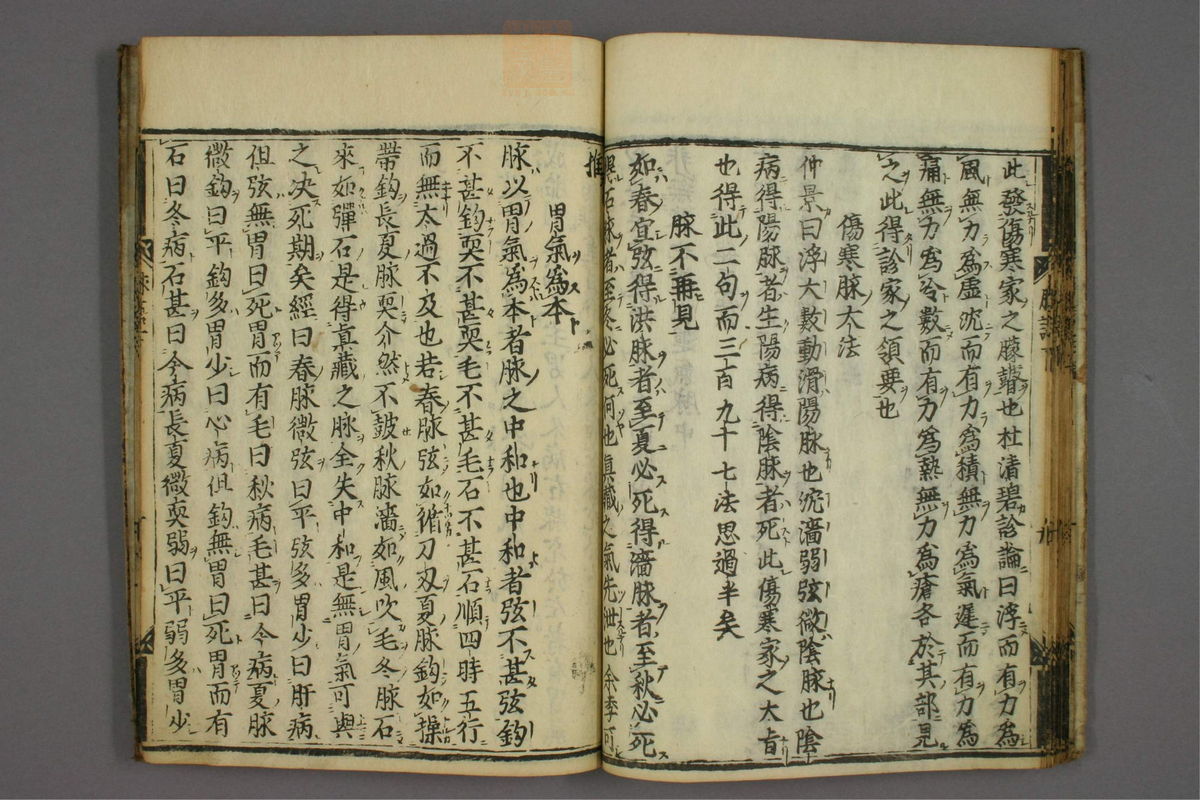 此發傷寒家之矇瞽也杜清碧診論曰浮而有力為
風無力為虛沉而有力為積無力為氣遲而有力為
痛無力為冷數而有力為熱無力為瘡各於其部見
之此得診家之領要也
傷寒脉大法
仲景曰浮大數動滑陽脉也沉濇弱弦微陰脉也陰
病得陽脉者生陽病得陰脉者死此傷寒家之大旨
也得此二句而三百九十七法思過半矣
脉不再見
如春宜弦得洪脉者至夏必死得濇脉者至秋必死
得石脉者至冬必死何也真藏之氣先泄也余李可
推
胃氣為本
脉以胃氣為本者脉之中和也中和者弦不甚弦鈎
不甚鈎耎不甚耎毛不甚毛石不甚石順四時五行
而無太過不及也若春脉弦如循刀刃夏脉鈎如操
帶鈎長夏脉耎介然不皷秋脉濇如風吹毛冬脉石
來如彈石是得真藏之脉全失中和是無胃氣可與
之决死期矣經曰春脉微弦曰平弦多胃少曰肝病
但弦無胃曰死胃而有毛曰秋病毛甚曰今病夏脉
微鈎曰平鈎多胃少曰心病但鈎無胃曰死胃而有
石曰冬病石甚曰今病長夏微耎弱曰平弱多胃少
脉語下